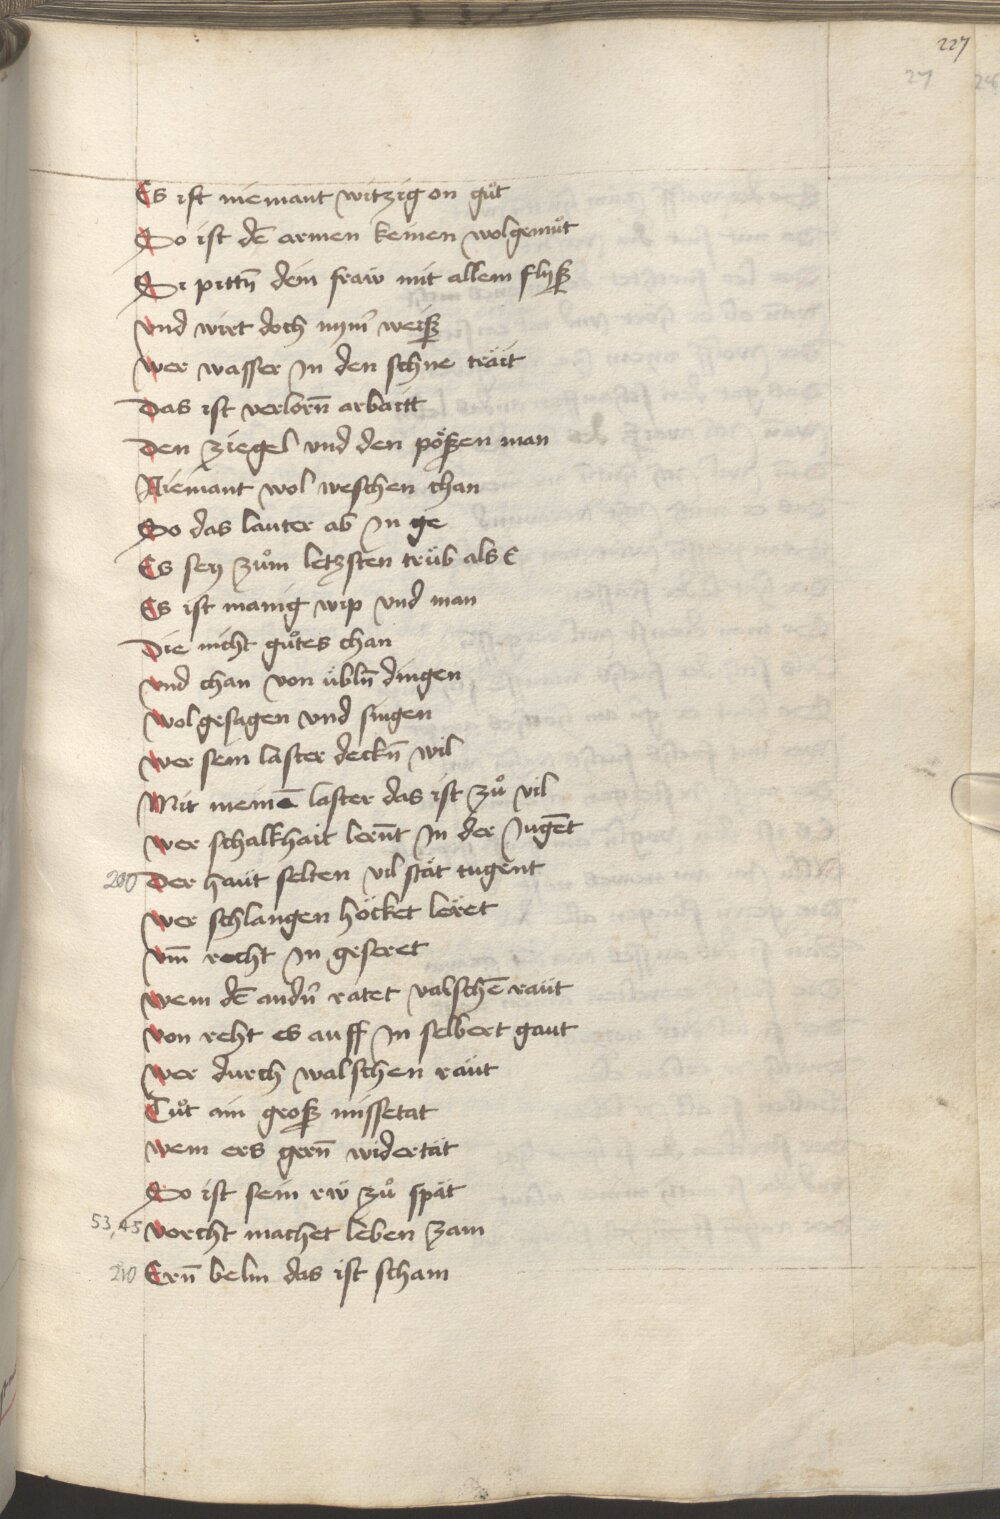 227
27
Es ist niemant witzig on gůt
So ist dē armen keinen wolgemůt
Si pittn̄ dein fraw mit allem flyß
vnd wirt doch nym̄ weiß
wer wasser In den schne träit
Das ist verlorn̄ arbaitt
Den ziegel vnd den pößen man
Niemant wol weschen chan
So das lauter ab In ge
Es sey zům letzsten trüb als E
Es ist manig wip vnd man
Die nicht gůtes chan
vnd chan von übln̄ dingen
wol gesagen vnd singen
wer sein laster deckn̄ wil
Mit meinē laster das ist zů vil
wer schalkhait lernt̄ In der Jugēt
200 Der haüt selten vil stät tugent
wer schlangen höcket leret
vm̄ recht In geseret
wem dē andn̄ ratet valschē raüt
von reht es auff In selbert gaut
wer durch walschen raüt
Tůt ain groß missetat
wem ers gern̄ widertät
So ist sein rw zů spät
53,45 vorcht machet leben zam
210 Ern̄ belm das ist scham